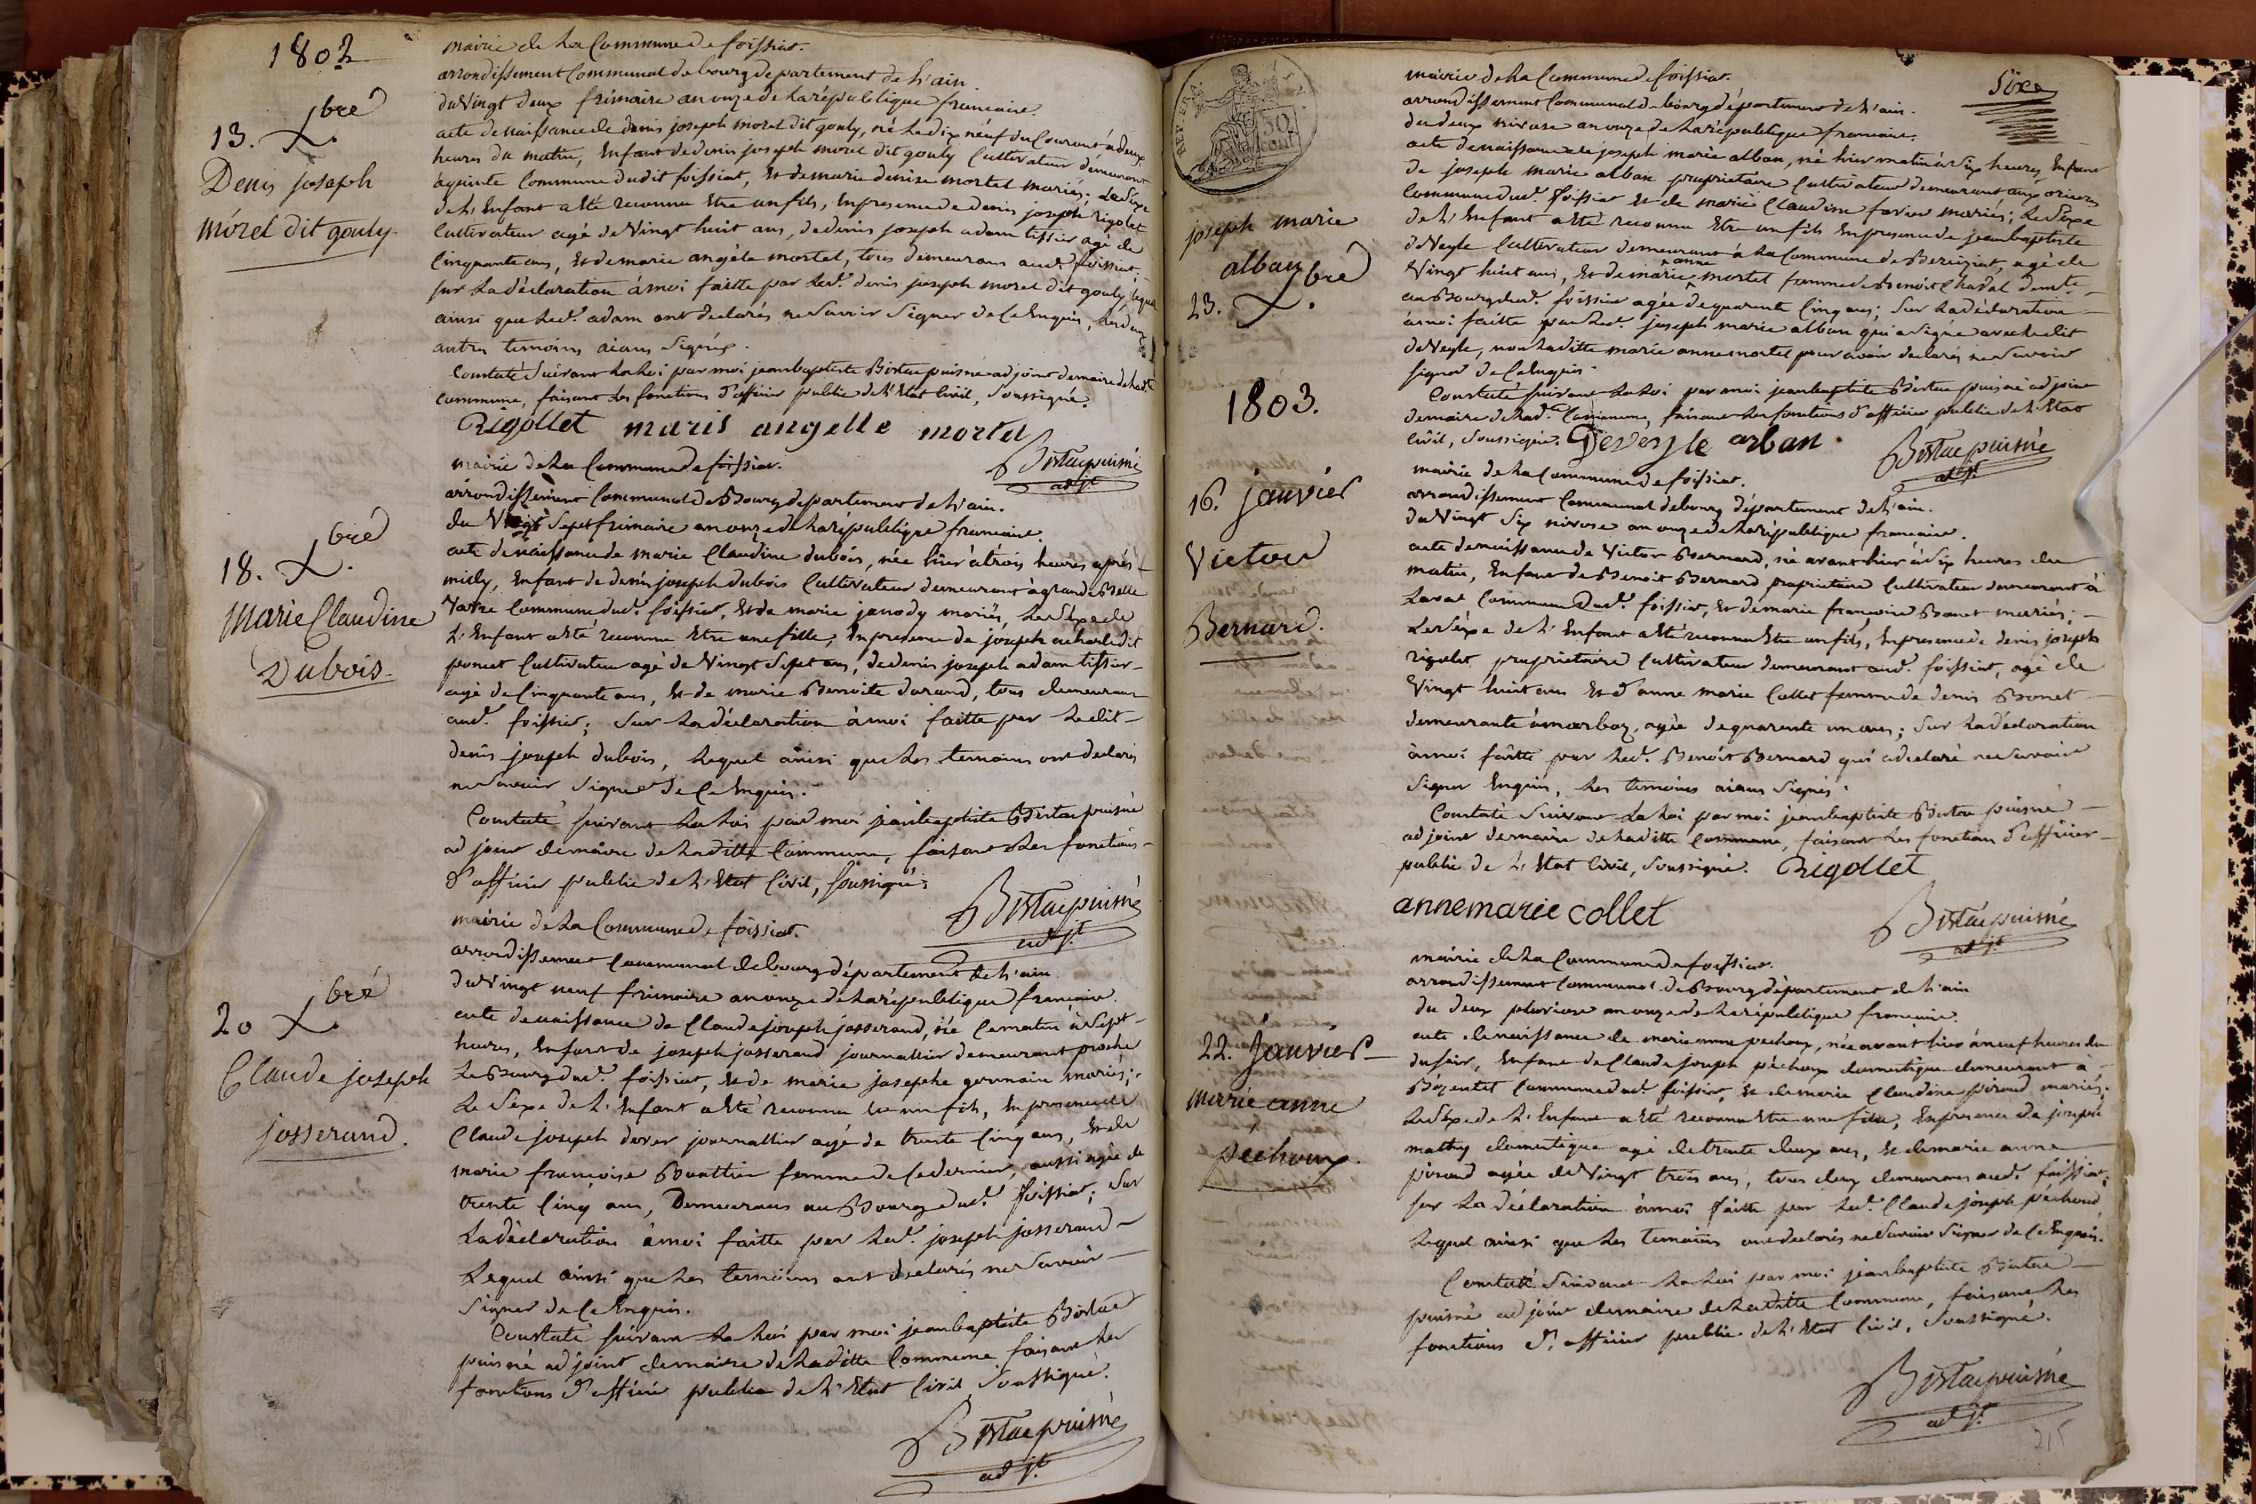 1802
mairie de La Commune de foissiat.
arrondissement Communal de bourg departement de L'ain.
du Vingt deux frimaire an onze de La république francaise.
13. Xbre
acte de naissance de denis joseph morel dit gouly, né Le dix neuf du Courant à deux
heures du matin, Enfant de denis joseph morel dit gouly Cultivateur demeurant
Denis joseph
morel dit gouly.
Commune dudit foissiat, Et de marie denise mortel mariés; Le Séxe
de L'Enfant a Eté reconnu Etre un fils, En presence de denis joseph rigolet
Cultivateur agé de Vingt huit ans, de denis joseph adam tissier agé de
Cinquante ans, Et de marie angéle mortel, tous demeurans aud. foissiat;
sur La déclaration à moi faitte par Led. denis joseph morel dit gouly, lequel
ainsi que Led. adam ont declarés ne Savoir Signer de Ce Enquis, Les deux
autres temoins aians Signés.
Constaté Suivant La Loi par moi jean baptiste Bistac puisné adjoint de maire de Ladte
Commune, faisant Les fonctions d'officier public de L'Etat Civil, Soussigné.
Rigollet marie angelle mortel
Bistac puisné
adjt.
mairie de La Commune de foissiat.
arrondissement Communal de Bourg departement de L'ain.
du Vingt Sept frimaire an onze de La république francaise.
18. Xbre
Marie Claudine
Dubois.
acte de naissance de marie Claudine dubois, née hier à trois heures après
midy, Enfant de denis joseph dubois Cultivateur demeurant à grand Belle
Commune dud. foissiat, Et de marie janody mariés, Le Séxe de
L'Enfant a Eté reconnu Etre une fille; En presence de joseph
poncet Cultivateur agé de Vingt Sept ans, de denis joseph adam tissier
agé de Cinquante ans, Et de marie Benoite durand, tous demeurans
aud. foissiat; Sur La déclaration à moi faitte par Ledit
denis joseph dubois, Lequel ainsi que Les temoins ont declarés
ne Savoir Signer de Ce Enquis.
Constaté Suivant La Loi par moi jean baptiste Bistac puisné
adjoint de maire de Laditte Commune, faisant Les fonctions
d'officier public de L'Etat Civil, Soussigné;
Bistac puisné
adjt.
mairie de La Commune de foissiat.
arrondissement Communal de bourg département de L'ain.
du Vingt neuf frimaire an onze de La république francaise.
20 Xbre
Claude joseph
josserand.
acte de naissance de Claude joseph josserand, né Ce matin à Sept
heures, Enfant de joseph josserand journallier demeurant proche
Le Bourg dud. foissiat, Et de marie josephe germain mariés;
Le Séxe de L'Enfant a Eté reconnu Etre un fils, En presence de
Claude joseph dorer journallier agé de trente Cinq ans, Et de
marie francoise Bouattier femme de Ce dernier, aussi agée de
trente Cinq ans, Demeurans au Bourg dud. foissiat; Sur
La déclaration à moi faitte par Led. joseph josserand
Lequel ainsi que Les temoins ont declarés ne Savoir
Signer de Ce Enquis.
Constaté Suivant La Loi par moi jean baptiste Bistac
puisné adjoint de maire de Laditte Commune faisant Les
fonctions d'officier public de L'Etat Civil Soussigné.
Bistac puisné
adjt.
50
cent.
Sixe
mairie de La Commune de foissiat.
arrondissement Communal de bourg département de L'ain.
du deux nivose an onze de La république francaise.
joseph marie
alban
23. Xbre
acte de naissance de joseph marie alban, né hier matin à Six heures, Enfant
de joseph marie alban proprietaire Cultivateur demeurant aux
Commune dud. foissiat Et de marie Claudine mariés; Le Séxe
de L'Enfant a Eté reconnu Etre un fils En presence de jean baptiste
deVeyle Cultivateur demeurant à La Commune de Bereiziat, agé de
Vingt huit ans, Et de marie anne mortel femme de Benoit Chadal demte
au Bourg dud. foissiat agée de quarante Cinq ans; Sur La déclaration
à moi faitte par Led. joseph marie alban qui a Signé avec Ledit
deVeyle, non Laditte marie anne mortel pour avoir declaré ne Savoir
Signer de Ce Enquis.
Constaté Suivant La Loi par moi jean baptiste Bistac puisné adjoint
de maire de Lad. Commune, faisant Les fonctions d'officier public de L'Etat
Civil, Soussigné. Deveyle arban.
Bistac puisné
adjt.
1803.
mairie de La Commune de foissiat.
arrondissement Communal de bourg département de L'ain.
du Vingt Six nivose an onze de La république francaise.
16. janvier
Victor
Bernard.
acte de naissance de Victor Bernard, né avant hier à Six heures du
matin, Enfant de Benoit Bernard proprietaire Cultivateur demeurant à
Laval Commune dud. foissiat, Et de marie francoise Bonet mariés;
Le Séxe de L'Enfant a Eté reconnu Etre un fils, En presence de denis joseph
rigolet proprietaire Cultivateur demeurant aud. foissiat, agé de
Vingt huit ans Et d'anne marie Collet femme de denis Bonet
demeurante à marboz, agée de quarante un ans; Sur La déclaration
à moi faitte par Led. Benoit Bernard qui a declaré ne Savoir
Signer Enquis, Les temoins aians Signés.
Constaté Suivant La Loi par moi jean baptiste Bistac puisné
adjoint de maire de Laditte Commune, faisant Les fonctions d'officier
public de L'Etat Civil, Soussigné. Rigollet
annemarie collet
Bistac puisné
adjt.
mairie de La Commune de foissiat.
arrondissement Communal de Bourg département de L'ain
du deux pluviose an onze de La république francaise.
22. Janvier
Marie anne
péchoux.
acte de naissance de marie anne pechoux, née avant hier à neuf heures du
du soir, Enfant de Claude joseph péchoux domestique demeurant à
Bézentet Commune dud. foissiat, Et de marie Claudine piroud mariés;
Le Séxe de L'Enfant a Eté reconnu Etre une fille, En presence de joseph
mathy domestique agé de trente deux ans, Et de marie anne
piroud agée de Vingt trois ans, tous deux demeurans aud. foissiat;
Sur La déclaration à moi faitte par Led. Claude joseph péchoux
Lequel ainsi que Les temoins ont declarés ne Savoir Signer de Ce Enquis.
Constaté Suivant La Loi par moi jean baptiste Bistac
puisné adjoint de maire de Laditte Commune, faisant Les
fonctions d'officier public de L'Etat Civil, Soussigné.
Bistac puisné
adjt.
215